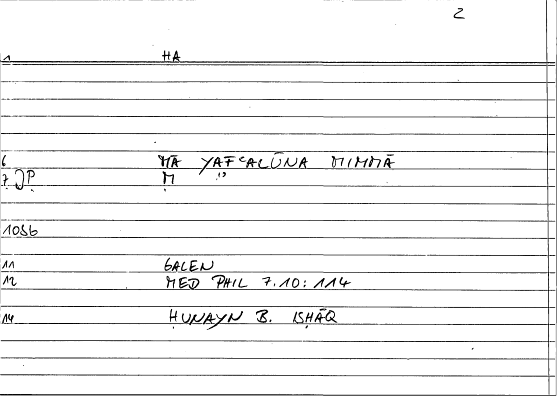 2
1 HA
6 MA YAFʿALŪNA MIMMĀ
7 JP M "
1056
11 GALEN
12 MED PHIL 7.10: 114
14 ḤUNAYN B. ISḤĀQ